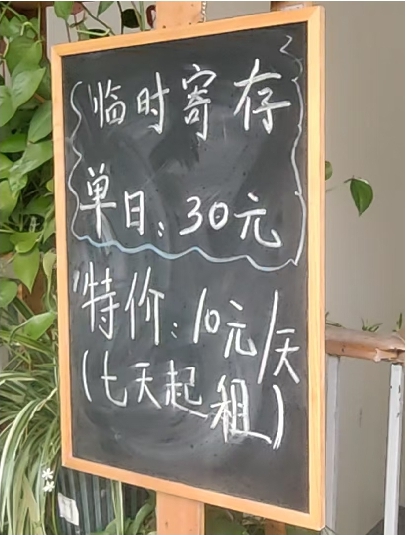 临时寄存
单日:30元
特价:10元/天
(七天起租)